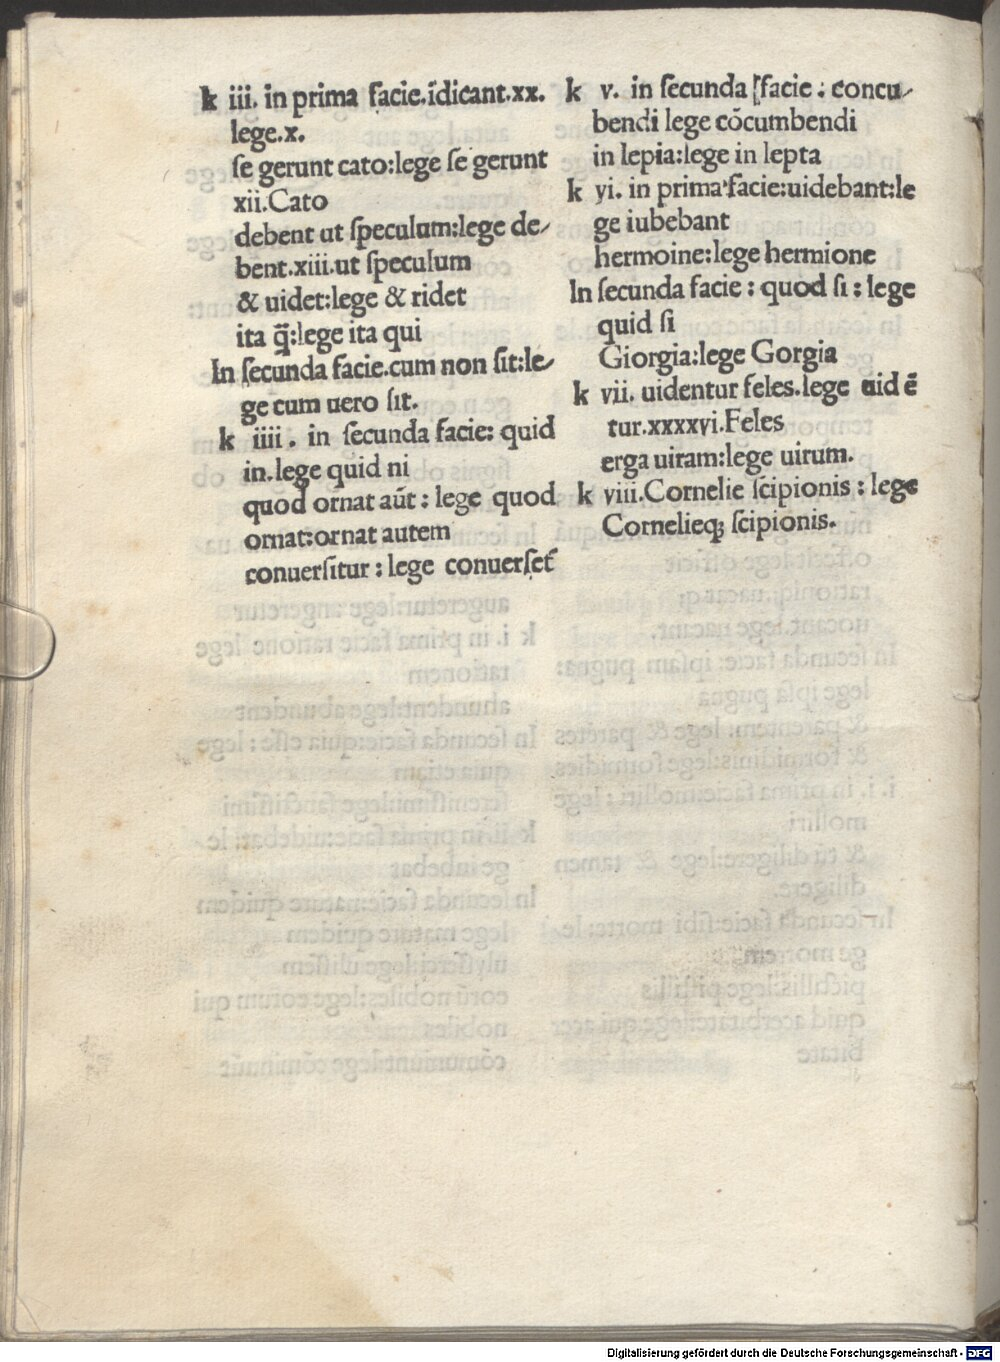 k iii. in prima facie.īdicant.xx.
lege.x.
ſe gerunt cato:lege ſe gerunt
xii.Cato
debent ut ſpeculum:lege de⸗
bent.xiii.ut ſpeculum
& uidet:lege & ridet
ita q̄:lege ita qui
In ſecunda facie.cum non ſit:le⸗
ge cum uero ſit.
k iiii. in ſecunda facie: quid
in.lege quid ni
quod ornat aūt : lege quod
ornat:ornat autem
conuerſitur : lege conuerſet̄
k v. in ſecunda facie : concu⸗
bendi lege cōcumbendi
in lepia:lege in lepta
k yi. in prima facie:uidebant:le
ge iubebant
hermoine:lege hermione
In ſecunda facie : quod ſi : lege
quid ſi
Giorgia:lege Gorgia
k vii. uidentur feles.lege uidē
tur.xxxxvi.Feles
erga uiram:lege uirum.
k viii.Cornelie ſcipionis : lege
Cornelieq; ſcipionis.
Digitalisierung gefördert durch die Deutsche Forschungsgemeinschaft - DFG